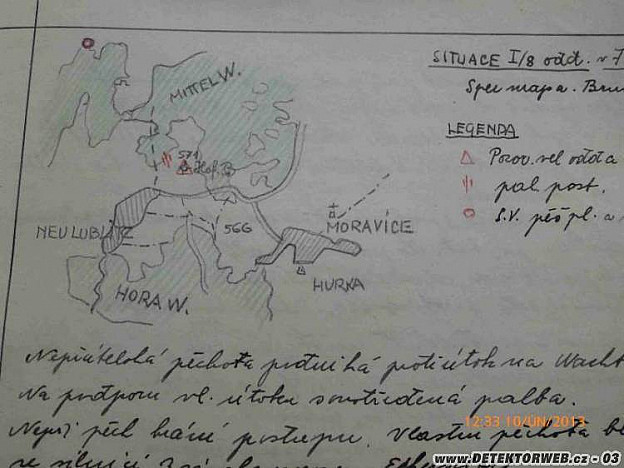 SITUACE I/8 odd. v 7
Spec mapa. Bru
MITTELW.
LEGENDA
571
Poz. vel. oddílu a
pal. post.
S.V. pěš pl. a
NEU LUBLITZ
566
MORAVÍCE
HURKA
HORA W.
Nepřátelská pěchota podniká protiútok na Wacht
Na podporu vl. útoku soustředěná palba.
Nepř. pěch brání postupu. Vlastní pěchota
12:33 10/ÚN/2013
www.DETEKTORWEB.cz - 03